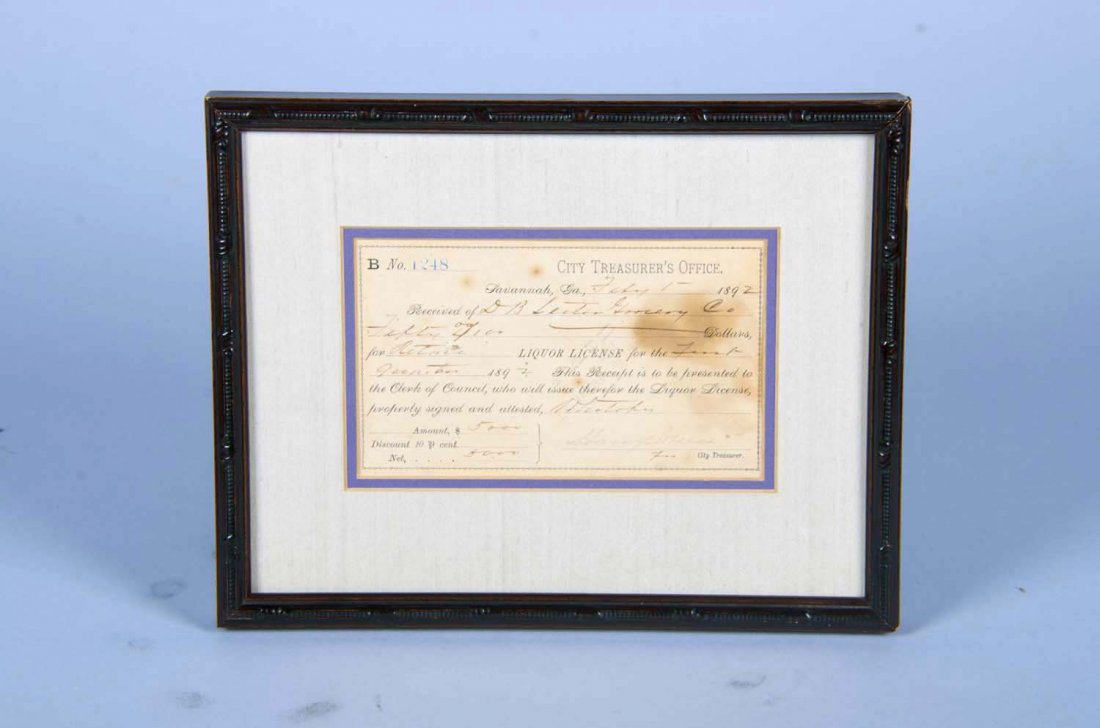 B No. 1248 CITY TREASURER'S OFFICE.
Savannah, Ga., Feby 5 1892
Received of D B Grocery Co
Fifty 00/100 Dollars,
for Retail LIQUOR LICENSE for the First
Quarter 1892 This Receipt is to be presented to
the Clerk of Council, who will issue therefor the Liquor License,
properly signed and attested,
Amount, $ 5000
Discount 10 ⅌ cent.
Net, . . . . 5000
City Treasurer.